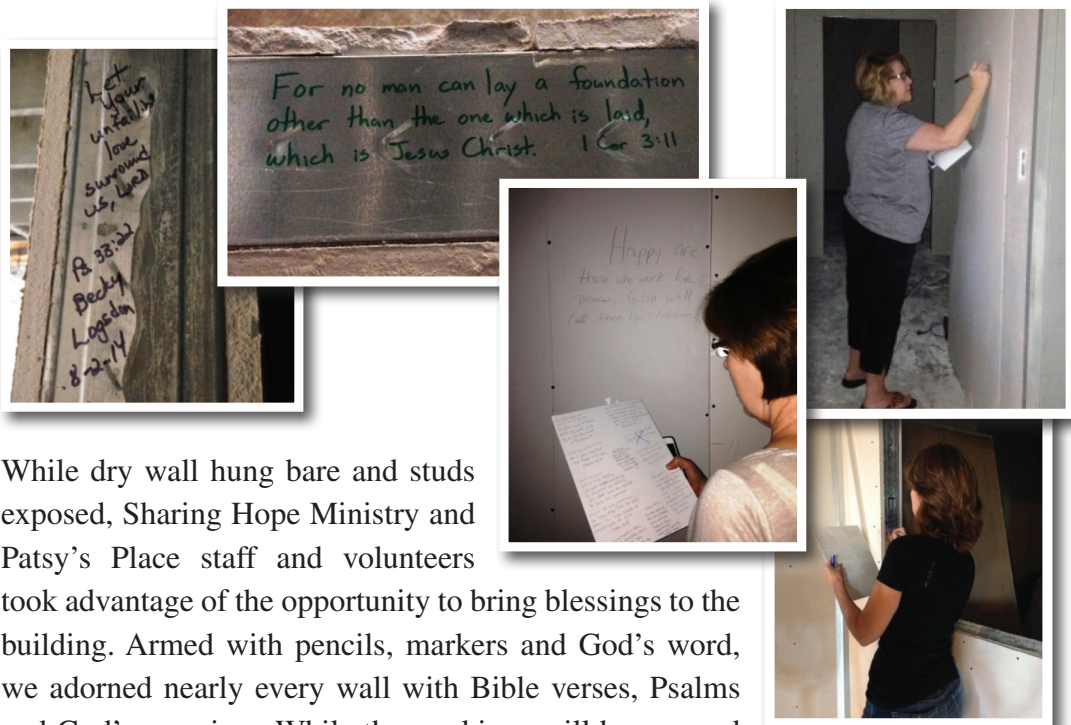 Let
your
unfailing
love
surround
us, Lord
Ps 33:22
Becky
Logsdon
8-2-14
For no man can lay a foundation
other than the one which is laid,
which is Jesus Christ. 1 Cor 3:11
Happy are
those who work for
peace. God will
call them his children
While dry wall hung bare and studs
exposed, Sharing Hope Ministry and
Patsy's Place staff and volunteers
took advantage of the opportunity to bring blessings to the
building. Armed with pencils, markers and God's word,
we adorned nearly every wall with Bible verses, Psalms